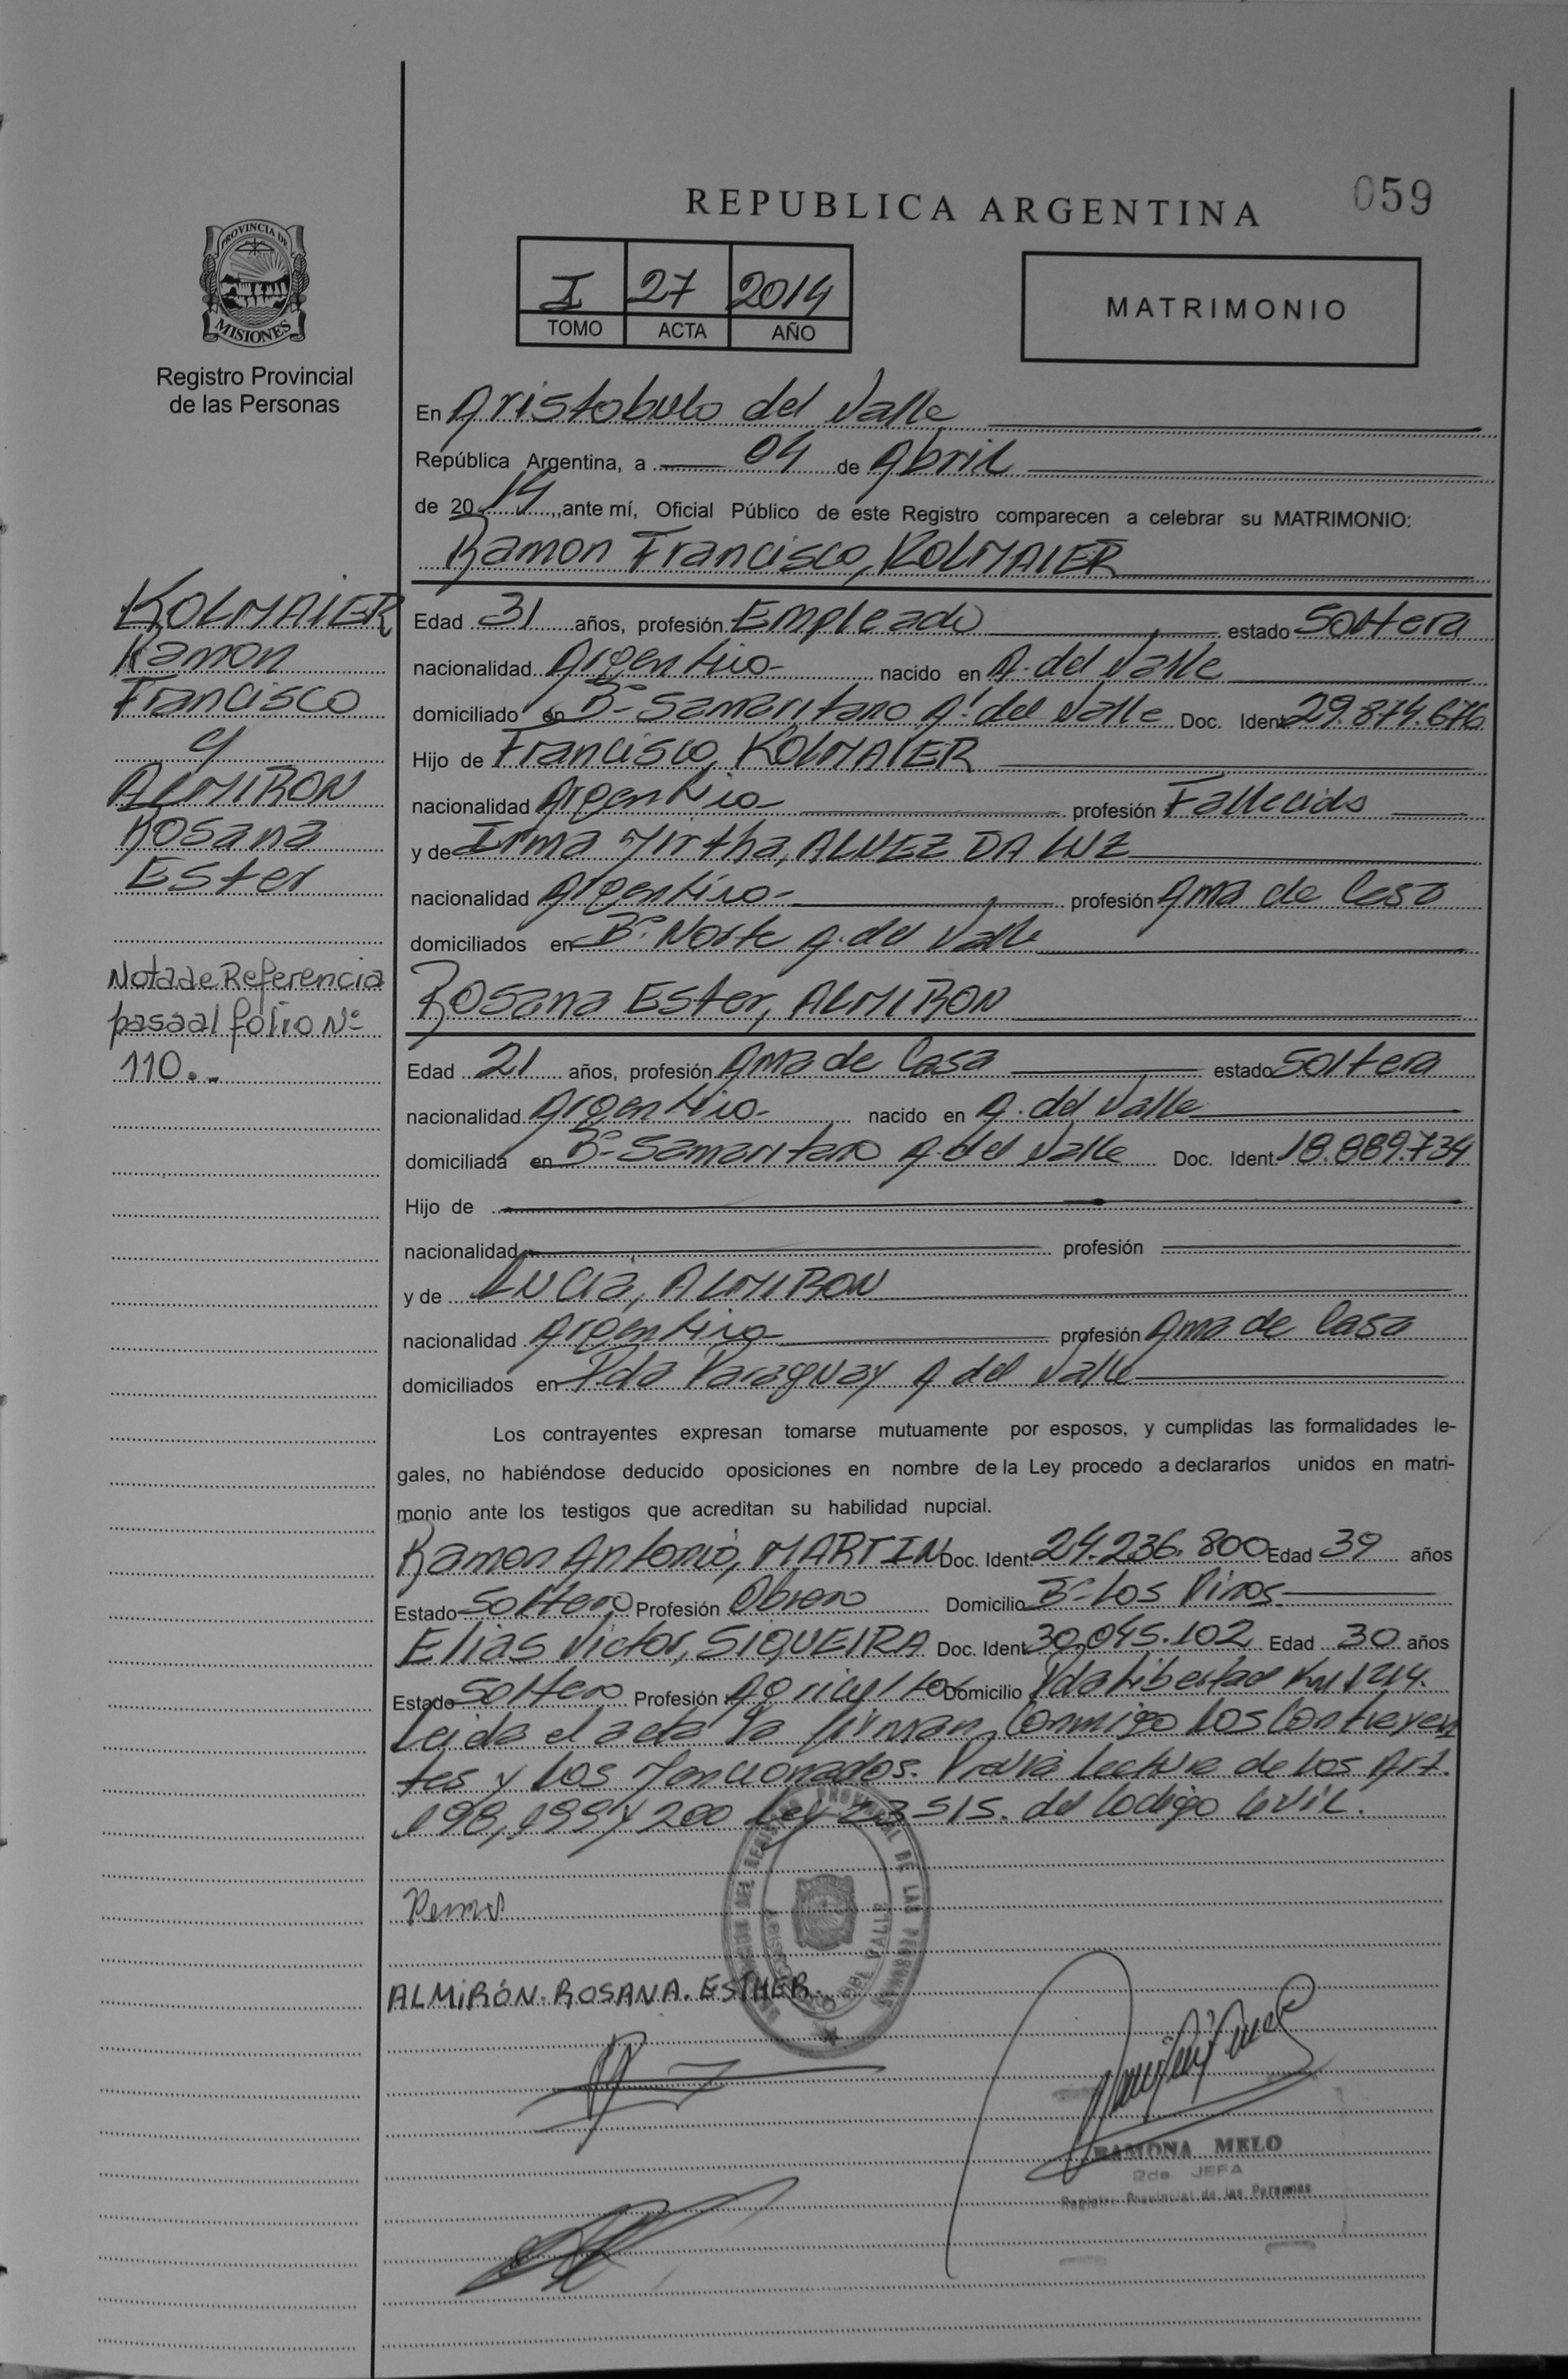 059
REPUBLICA ARGENTINA
PROVINCIA DE
MISIONES
Registro Provincial
de las Personas
I 27 2014
TOMO ACTA AÑO
MATRIMONIO
En Aristobulo del Valle
República Argentina, a 04 de Abril
de 20 14, ante mí, Oficial Público de este Registro comparecen a celebrar su MATRIMONIO:
Ramon Francisco, KOLMAIER
KOLMAIER
Ramon
Francisco
y
ALMIRON
Rosana
Ester
Nota de Referencia
pasa al folio Nº
110.-
Edad 31 años, profesión Empleado estado Soltera
nacionalidad Argentino- nacido en A. del Valle
domiciliado en Bº Samaritano A. del Valle Doc. Ident. 29.874.676
Hijo de Francisco, KOLMAIER
nacionalidad Argentino- profesión Fallecido
y de Irma Mirtha, ALVEZ DA LUZ
nacionalidad Argentino- profesión Ama de Casa
domiciliados en Bº Norte A. del Valle
Rosana Ester, ALMIRON
Edad 21 años, profesión Ama de Casa estado Soltera
nacionalidad Argentino- nacido en A. del Valle
domiciliada en Bº Samaritano A. del Valle Doc. Ident. 18.889.734
Hijo de
nacionalidad profesión
y de Lucia, ALMIRON
nacionalidad Argentino profesión Ama de Casa
domiciliados en Pda Paraguay A del Valle
Los contrayentes expresan tomarse mutuamente por esposos, y cumplidas las formalidades le-
gales, no habiéndose deducido oposiciones en nombre de la Ley procedo a declararlos unidos en matri-
monio ante los testigos que acreditan su habilidad nupcial.
Ramon Antonio, MARTIN Doc. Ident. 24.236.800 Edad 39 años
Estado Soltero Profesión Obrero Domicilio Bº Los Pinos
Elias Victor, SIQUEIRA Doc. Ident. 30.045.102 Edad 30 años
Estado Soltero Profesión Agricultor Domicilio Pda Libertad Km 1214.
Leida el acta la firman Conmigo Los Contrayen
tes y Los Mencionados. Previa Lectura de Los Art.
198, 199 y 200 Ley 23515. del Codigo Civil.
ALMIRÓN. ROSANA. ESTHER.
DEL VALLE
RAMONA MELO
2da. JEFA
Registro Provincial de las Personas